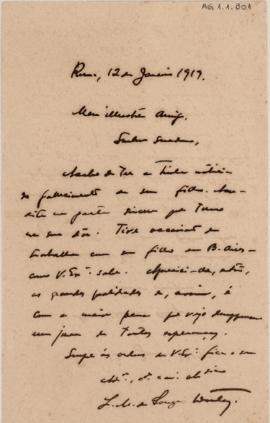 AG.1.1.001
Roma, 12 de Janeiro 1919.
Meu illustre Amigo,
Senhor
Acabo de ter a triste noticia
do fallecimento de seu filho. Acre-
dite na parte sincera que tomo
na sua dôr. Tive occasião de
trabalhar com seu filho em B. Aires
como V. Exª sabe. Apreciei-lhe, então,
as grandes qualidades e, assim, é
com a maior pena que vejo desapparecer
um jovem de tantas esperanças.
Sempre ás ordens de V. Exª fico o seu
L. M. de Souza Dantas